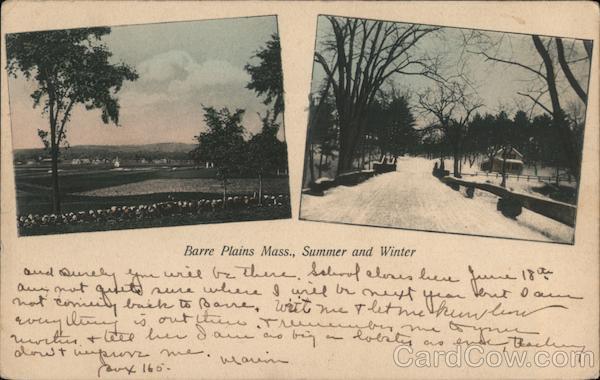 Barre Plains Mass., Summer and Winter
and surely you will be there. School closes here June 18th
am not quite sure where I will be next year but I am
not coming back to Barre. Write me & let me know how
everything is out there & remember me to your
mother & tell her I am as big a lobster as ever teaching
don't improve me. Marion
Box 160.
CardCow.com